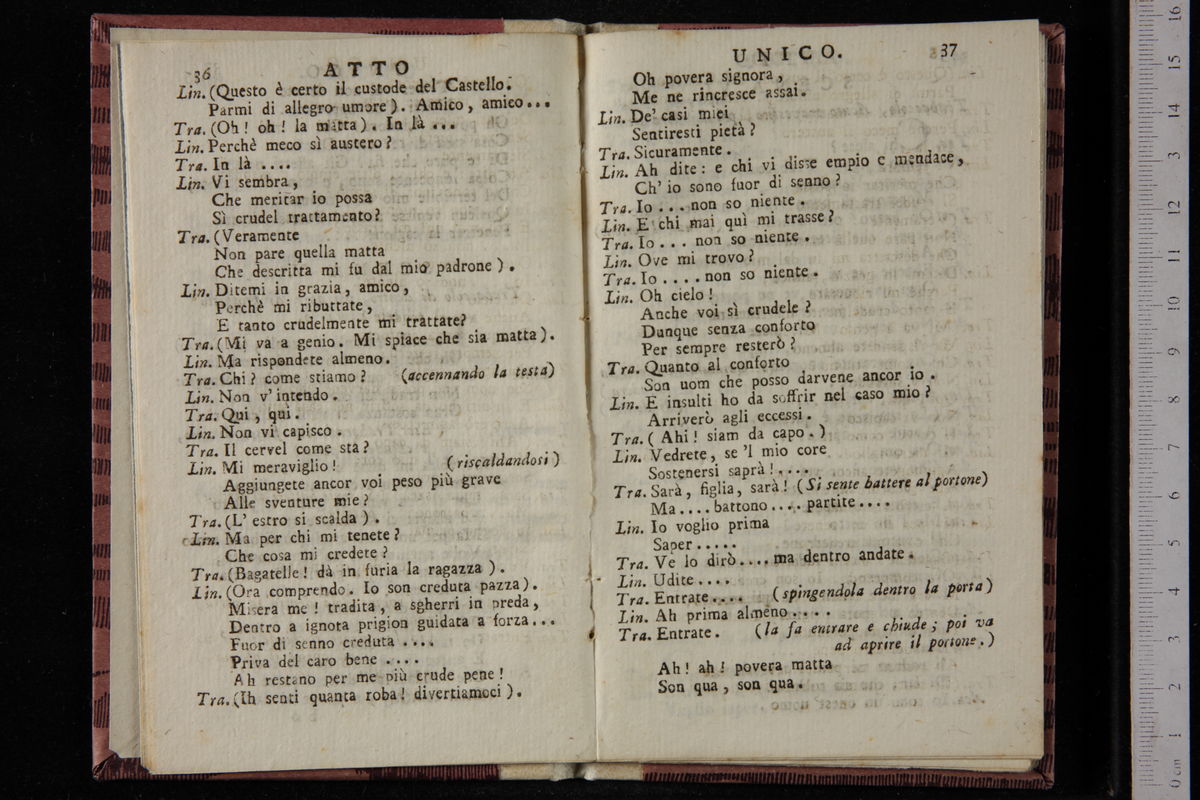 36
ATTO
Lin. (Questo è certo il custode del Castello.
Parmi di allegro umore). Amico, amico...
Tra. (Oh! oh! la matta). In là ...
Lin. Perchè meco sì austero?
Tra. In là ....
Lin. Vi sembra,
Che meritar io possa
Sì crudel trattamento?
Tra. (Veramente
Non pare quella matta
Che descritta mi fu dal mio padrone).
Lin. Ditemi in grazia, amico,
Perchè mi ributtate,
E tanto crudelmente mi trattate?
Tra. (Mi va a genio. Mi spiace che sia matta).
Lin. Ma rispondete almeno.
Tra. Chi? come stiamo? (accennando la testa)
Lin. Non v'intendo.
Tra. Qui, qui.
Lin. Non vi capisco.
Tra. Il cervel come sta?
Lin. Mi meraviglio! (riscaldandosi)
Aggiungete ancor voi peso più grave
Alle sventure mie?
Tra. (L'estro si scalda).
Lin. Ma per chi mi tenete?
Che cosa mi credete?
Tra. (Bagatelle! dà in furia la ragazza).
Lin. (Ora comprendo. Io son creduta pazza).
Misera me! tradita, a sgherri in preda,
Dentro a ignota prigion guidata a forza...
Fuor di senno creduta ....
Priva del caro bene ....
Ah restano per me più crude pene!
Tra. (Ih senti quanta roba! divertiamoci).
UNICO.
37
Oh povera signora,
Me ne rincresce assai.
Lin. De' casi miei
Sentiresti pietà?
Tra. Sicuramente.
Lin. Ah dite: e chi vi disse empio e mendace,
Ch'io sono fuor di senno?
Tra. Io ... non so niente.
Lin. E chi mai quì mi trasse?
Tra. Io ... non so niente.
Lin. Ove mi trovo?
Tra. Io .... non so niente.
Lin. Oh cielo!
Anche voi sì crudele?
Dunque senza conforto
Per sempre resterò?
Tra. Quanto al conforto
Son uom che posso darvene ancor io.
Lin. E insulti ho da soffrir nel caso mio?
Arriverò agli eccessi.
Tra. (Ahi! siam da capo.)
Lin. Vedrete, se 'l mio core
Sostenersi saprà!....
Tra. Sarà, figlia, sarà! (Si sente battere al portone)
Ma.... battono.... partite....
Lin. Io voglio prima
Saper.....
Tra. Ve lo dirò.... ma dentro andate.
Lin. Udite....
Tra. Entrate.... (spingendola dentro la porta)
Lin. Ah prima almeno....
Tra. Entrate. (la fa entrare e chiude; poi va
ad aprire il portone.)
Ah! ah! povera matta
Son qua, son qua.
0 cm 1 2 3 4 5 6 7 8 9 10 11 12 13 14 15 16